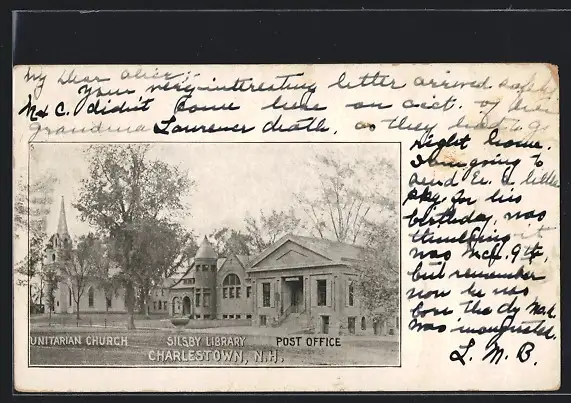 My Dear Alice:-
Your very interesting letter arrived safely
N & C. didn't come here on acct. of her
Grandma Lawrence death, as they had to go
right home.
I am going to
send Er. a little
pkg for his
birthday, was
thinking it
was Mch. 9th,
but remember
now he was
born the dy Mck.
was inaugurated.
L. M. B.
UNITARIAN CHURCH
SILSBY LIBRARY
POST OFFICE
CHARLESTOWN, N.H.